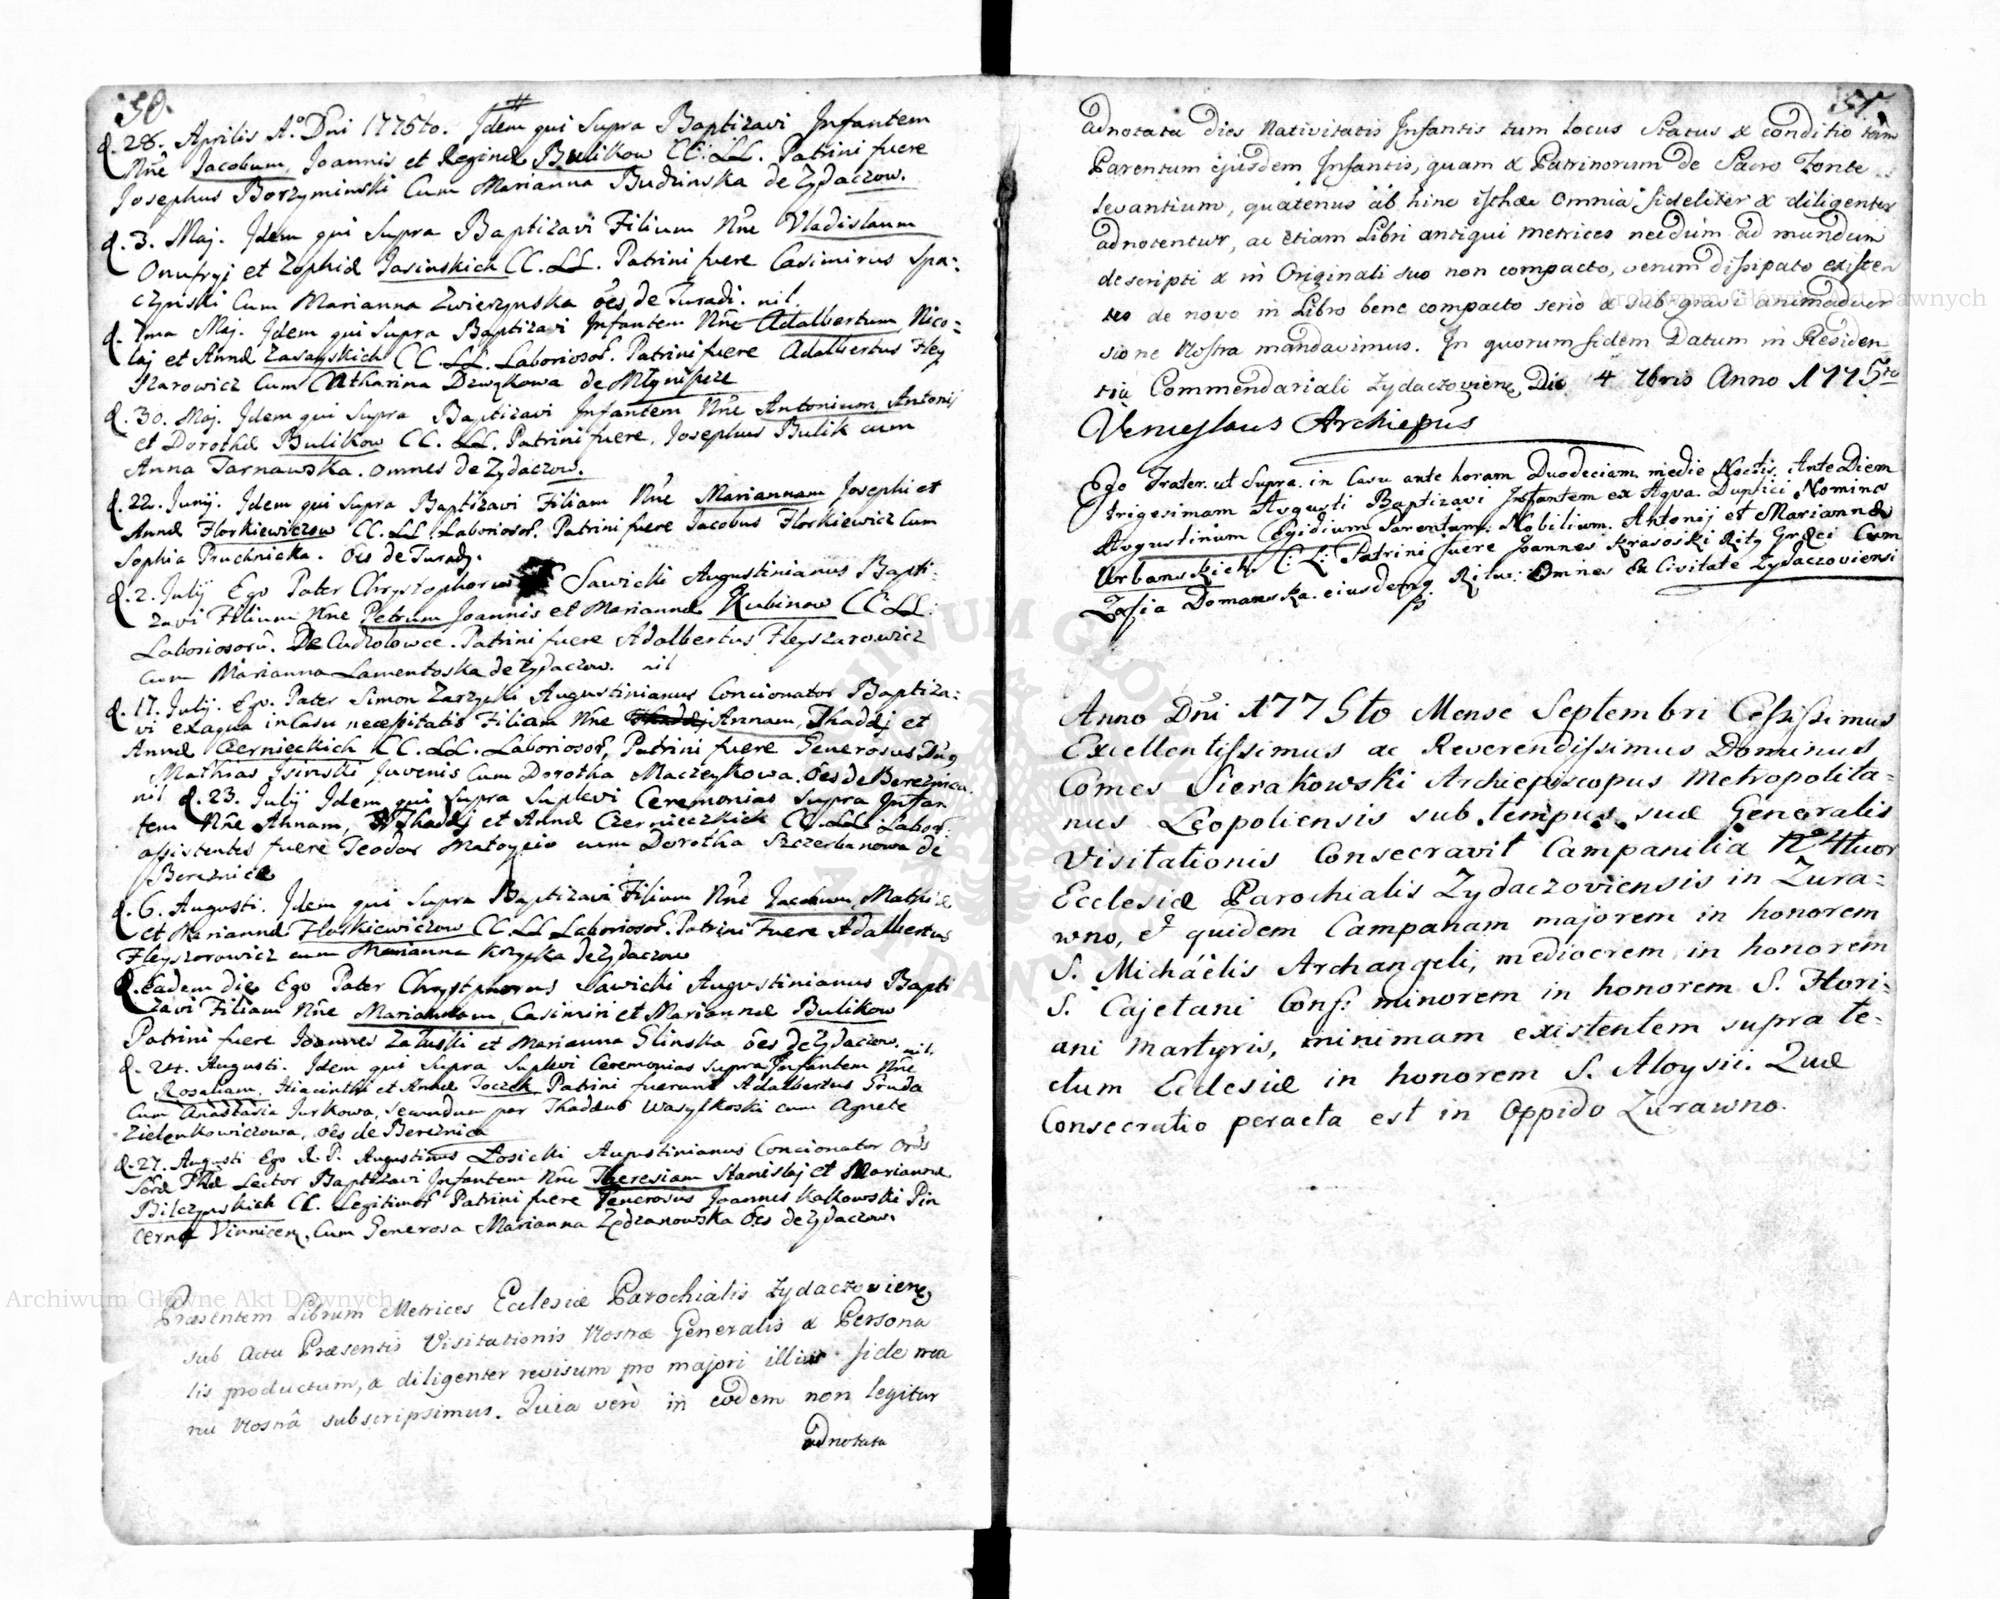 50.
d. 28. Aprilis A.º Dni 1775to. Idem qui Supra Baptizavi Infantem
Nñe Jacobum, Joannis et Reginæ Bulikow CC. LL. Patrini fuere
Josephus Borzyminski Cum Marianna Budzinska de Zydaczow.
d. 3. Maj. Idem qui Supra Baptizavi Filium Nñe Vladislaum
Onufryj et Zophiæ Jasinskich CC. LL. Patrini fuere Casimirus Spa=
czynski Cum Marianna Zwierzynska ões de Turadi. nil.
d. 7ma Maj. Idem qui Supra Baptizavi Infantem Nñe Adalbertum, Nico=
laj et Annæ Zasayskich CC. LL. Laboriosor. Patrini fuere Adalbertus Fley
szarowicz Cum Catharina Dzwąkowa de Młyniszcze
d. 30. Maj. Idem qui Supra Baptizavi Infantem Nñe Antonium, Antonij
et Dorotheæ Bulikow CC. LL. Patrini fuere, Josephus Bulik cum
Anna Tarnawska. omnes de Zydaczow.
d. 22. Junij. Idem qui Supra Baptizavi Filiam Nñe Mariannam Josephi et
Annæ Florkiewiczow CC. LL. Laboriosor. Patrini fuere Jacobus Florkiewicz Cum
Sophia Pruchnicka. Oes de Turady.
d. 2. Julij Ego Pater Chrystophorus Sawicki Augustinianus Bapti-
zavi Filium Nñe Petrum Joannis et Mariannæ Kubinow CC LL.
Laboriosorũ. De Cudzolowce. Patrini fuere Adalbertus Fleyszarowicz
cum Marianna Lamentoska de Zydaczow. nil
d. 17. Julij. Ego. Pater Simon Zarzycki Augustinianus Concionator Baptiza=
vi ex aqua in Casu necessitatis Filiam Nñe Annam, Thaddæj et
Annæ Czernieckich CC. LL. Laboriosor, Patrini fuere Generosus Dñg
Mathias Jsinski juvenis Cum Dorotha Maczeykowa. ões de Bereznica.
nil d. 23. Julij Idem qui Supra Suplevi Ceremonias Supra Infan
tem Nñe Annam, Thaddæj et Annæ Czernieczkich CC. LL. Labor.
assistentes fuere Teodor Matoycio cum Dorotha Szczerbanowa de
Bereznice
d. 6. Augusti. Idem qui Supra Baptizavi Filium Nñe Jacobum, Mathiæ
et Mariannæ Floskiewiczow CC. LL. Laboriosor. Patrini Fuere Adalbertus
Fleyszorowicz cum Marianna Kozycka de Zydaczow
d. Eadem die Ego Pater Chrystphorus Sawicki Augustinianus Bapti
zavi Filiam Nñe Mariannam, Casimiri et Mariannæ Bulikow
Patrini fuere Joannes Załuski et Marianna Glinska ões de Zydaczow. nil.
d. 24. Augusti. Idem qui Supra Suplevi Ceremonias supra Infantem Nñe
Rosaliam, Hiacinthi et Annæ Toczek Patrini fuerunt Adalbertus Pruda
Cum Anastasia Jurkowa, secundum par Thaddeus Wasylkoski cum Agnete
Zielenkowiczowa, oês de Bereznica
d. 27. Augusti Ego R. P. Augustinus Łosicki Augustinianus Concionator Ords
Lector Baptizavi Infantem Nñe Theresiam Stanislaj et Mariannæ
Bilczynskich CC. Legitimor Patrini fuere Generosus Joannes Kalkowski Pin
cerna Vinnicen, Cum Generosa Marianna Zędzanowska ões de Zydaczow.
Præsentem Librum Metrices Ecclesiæ Parochialis Zydaczovien,
sub Actu Præsentis Visitationis Nostræ Generalis & Persona
lis productum, & diligenter revisum pro majori illius fide ma
nu Nostrâ subscripsimus. Quia verò in eodem non legitur
adnotata
51.
adnotata dies Nativitatis Infantis tum locus Status & conditio tam
Parentum ejusdem Infantis, quam & Patrinorum de Sacro Fonte
levantium, quatenus ab hinc isthæc omnia fideliter & diligenter
adnotentur, ac etiam Libri antiqui metrices necdum ad mundum
descripti & in Originali suo non compacto, verum dissipato existen
tes de novo in Libro bene compacto seriò & sub gravi animadver
sione Nostra mandavimus. In quorum fidem Datum in Residen
tia Commendariali Zydaczovien, Die 4 7bris Anno 1775to
Venceslaus Archiepus
Ego Frater. ut Supra. in Casu ante horam Duodeciam. medie Noctis. Ante Diem
trigesimam Augusti Baptizavi Infantem ex Aqva. Duplici Nomine
Avgustinum Egidium Parentum. Nobilium. Antonij et Mariannæ
Urbanskich C: L: Patrini fuere Joannes Krasoski Ritg Græci Cum
Zofia Domanska. eiusdemq. Ritus: Omnes Ex Civitate Zydaczoviensi
Anno Dñi 1775to Mense Septembri Celsissimus
Excellentissimus ac Reverendissimus Dominus
Comes Sierakowski Archiepiscopus Metropolita=
nus Leopoliensis sub tempus suæ Generalis
Visitationis Consecravit Campanilia Nº 4tuor
Ecclesiæ Parochialis Zydaczoviensis in Zura=
wno, & quidem Campanam majorem in honorem
S. Michaëlis Archangeli, mediocrem in honorem
S. Cajetani Conf: minorem in honorem S. Flori=
ani Martyris, minimam existentem supra te=
ctum Ecclesiæ in honorem S. Aloysii. Quæ
Consecratio peracta est in Oppido Zurawno.
Archiwum Główne Akt Dawnych
Archiwum Główne Akt Dawnych
ARCHIWUM GŁÓWNE AKT DAWNYCH